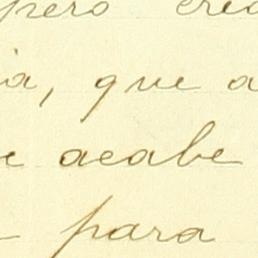 pero cre
ia, que a
e acabe
para